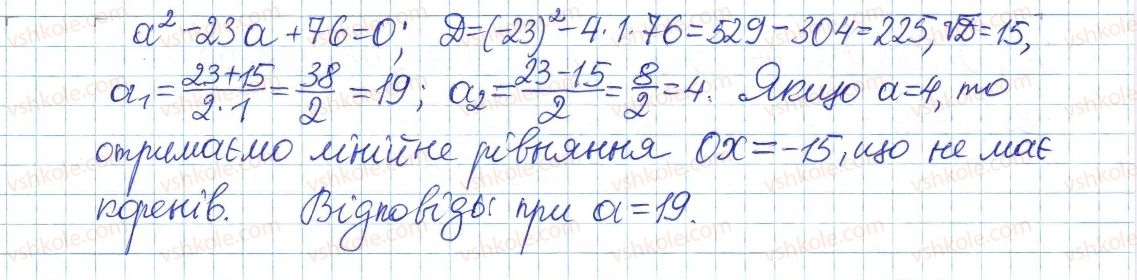 a² - 23a + 76 = 0; D = (-23)² - 4·1·76 = 529 - 304 = 225, √D = 15,
a₁ = (23+15)/(2·1) = 38/2 = 19; a₂ = (23-15)/2 = 8/2 = 4. Якщо a = 4, то
отримаємо лінійне рівняння 0x = -15, що не має
коренів. Відповідь: при a = 19.